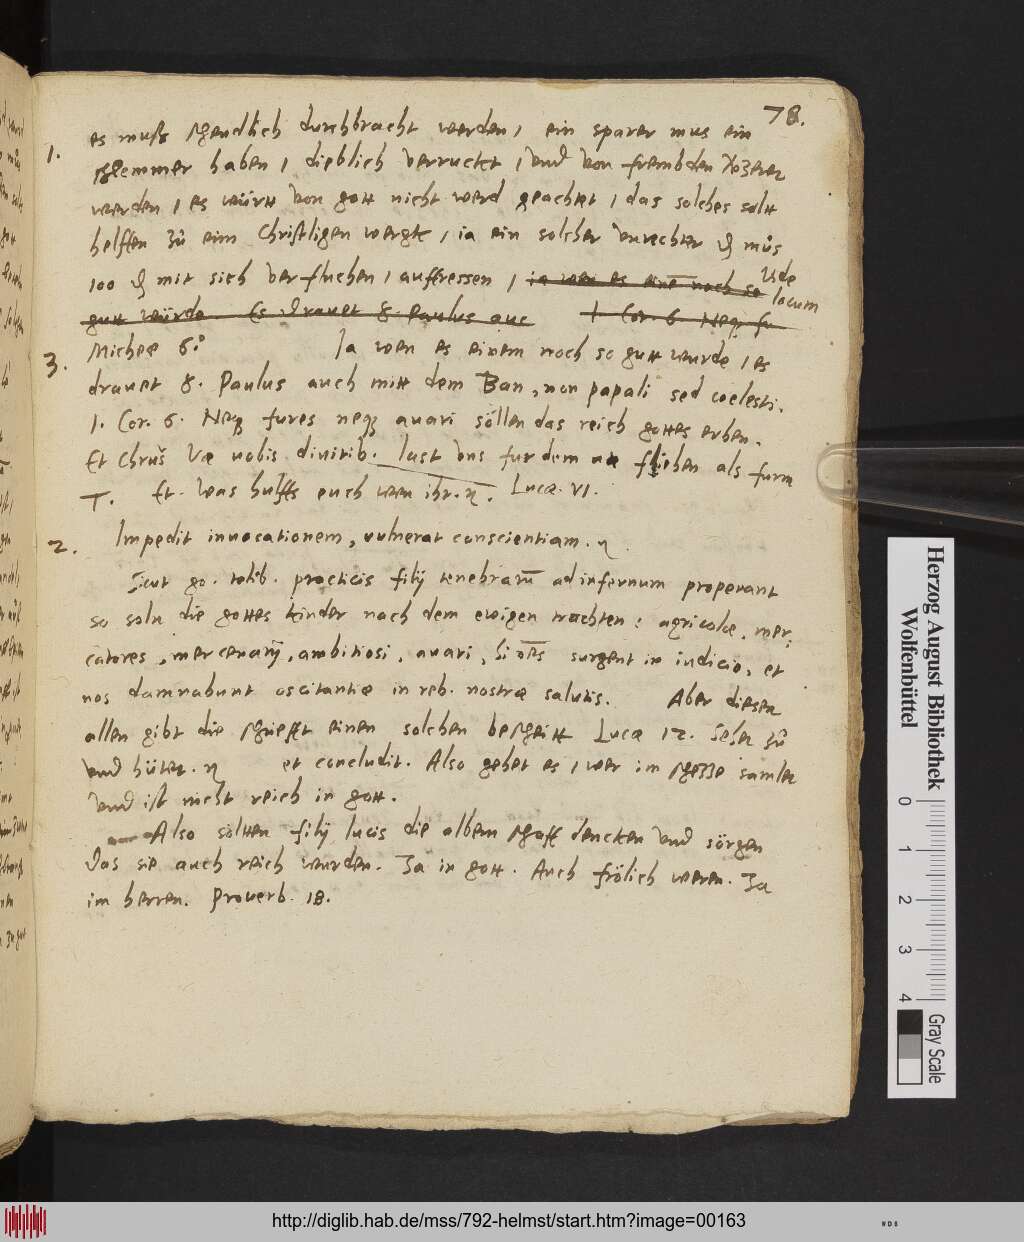 78.
1. es muss schendlich durchbracht werden, ein sparer mus ein
schlemmer haben, dieblich verruckt, und von frembden
werden, es württ von gott nicht werd geachtet, das solches soltt
helffen zu eim Christligen wergk, ia ein solcher unrechter ₰ mus
100 ₰ mit sich verfluchen, auffressen, ia wen es eine noch so
Vide
locum
gutt würde. Es drauet S. Paulus auc 1 Cor. 6 Neq fu
3. Micheæ 6.° Ja wen es einem noch so gutt wurde, es
drauet S. Paulus auch mitt dem Ban, non papali sed coelesti.
1. Cor. 6. Neq fures neq avari söllen das reich gottes erben.
Et Chrus Væ vobis divitib. last uns fur dem fliehen als furm
T. Et. Was hulffs euch wen ihr. Lucæ. VI.
2. Impedit invocationem, vulnerat conscientiam.
Sicut go. practicis filij tenebraru ad infernum properant
so soln die gottes kinder nach dem ewigen trachten: agricolæ, mer,
catores, mercenarij, ambitiosi, avari, Hi oes surgent in iudicio, et
nos damnabunt oscitantiæ in reb. nostræ salutis. Aber diesen
allen gibt die schriefft einen solchen bescheitt Lucæ 12. Sehet zu
und hütet. et concludit. Also gehet es, wer im schetze samlet
und ist nicht reich in gott.
Also soltten filij lucis die albern schaff dencken und sorgen
das sie auch reich wurden. Ja in gott. Auch frölich weren. Ja
im herren. Proverb. 18.
Herzog August Bibliothek
Wolfenbüttel
0 1 2 3 4
Gray Scale
http://diglib.hab.de/mss/792-helmst/start.htm?image=00163